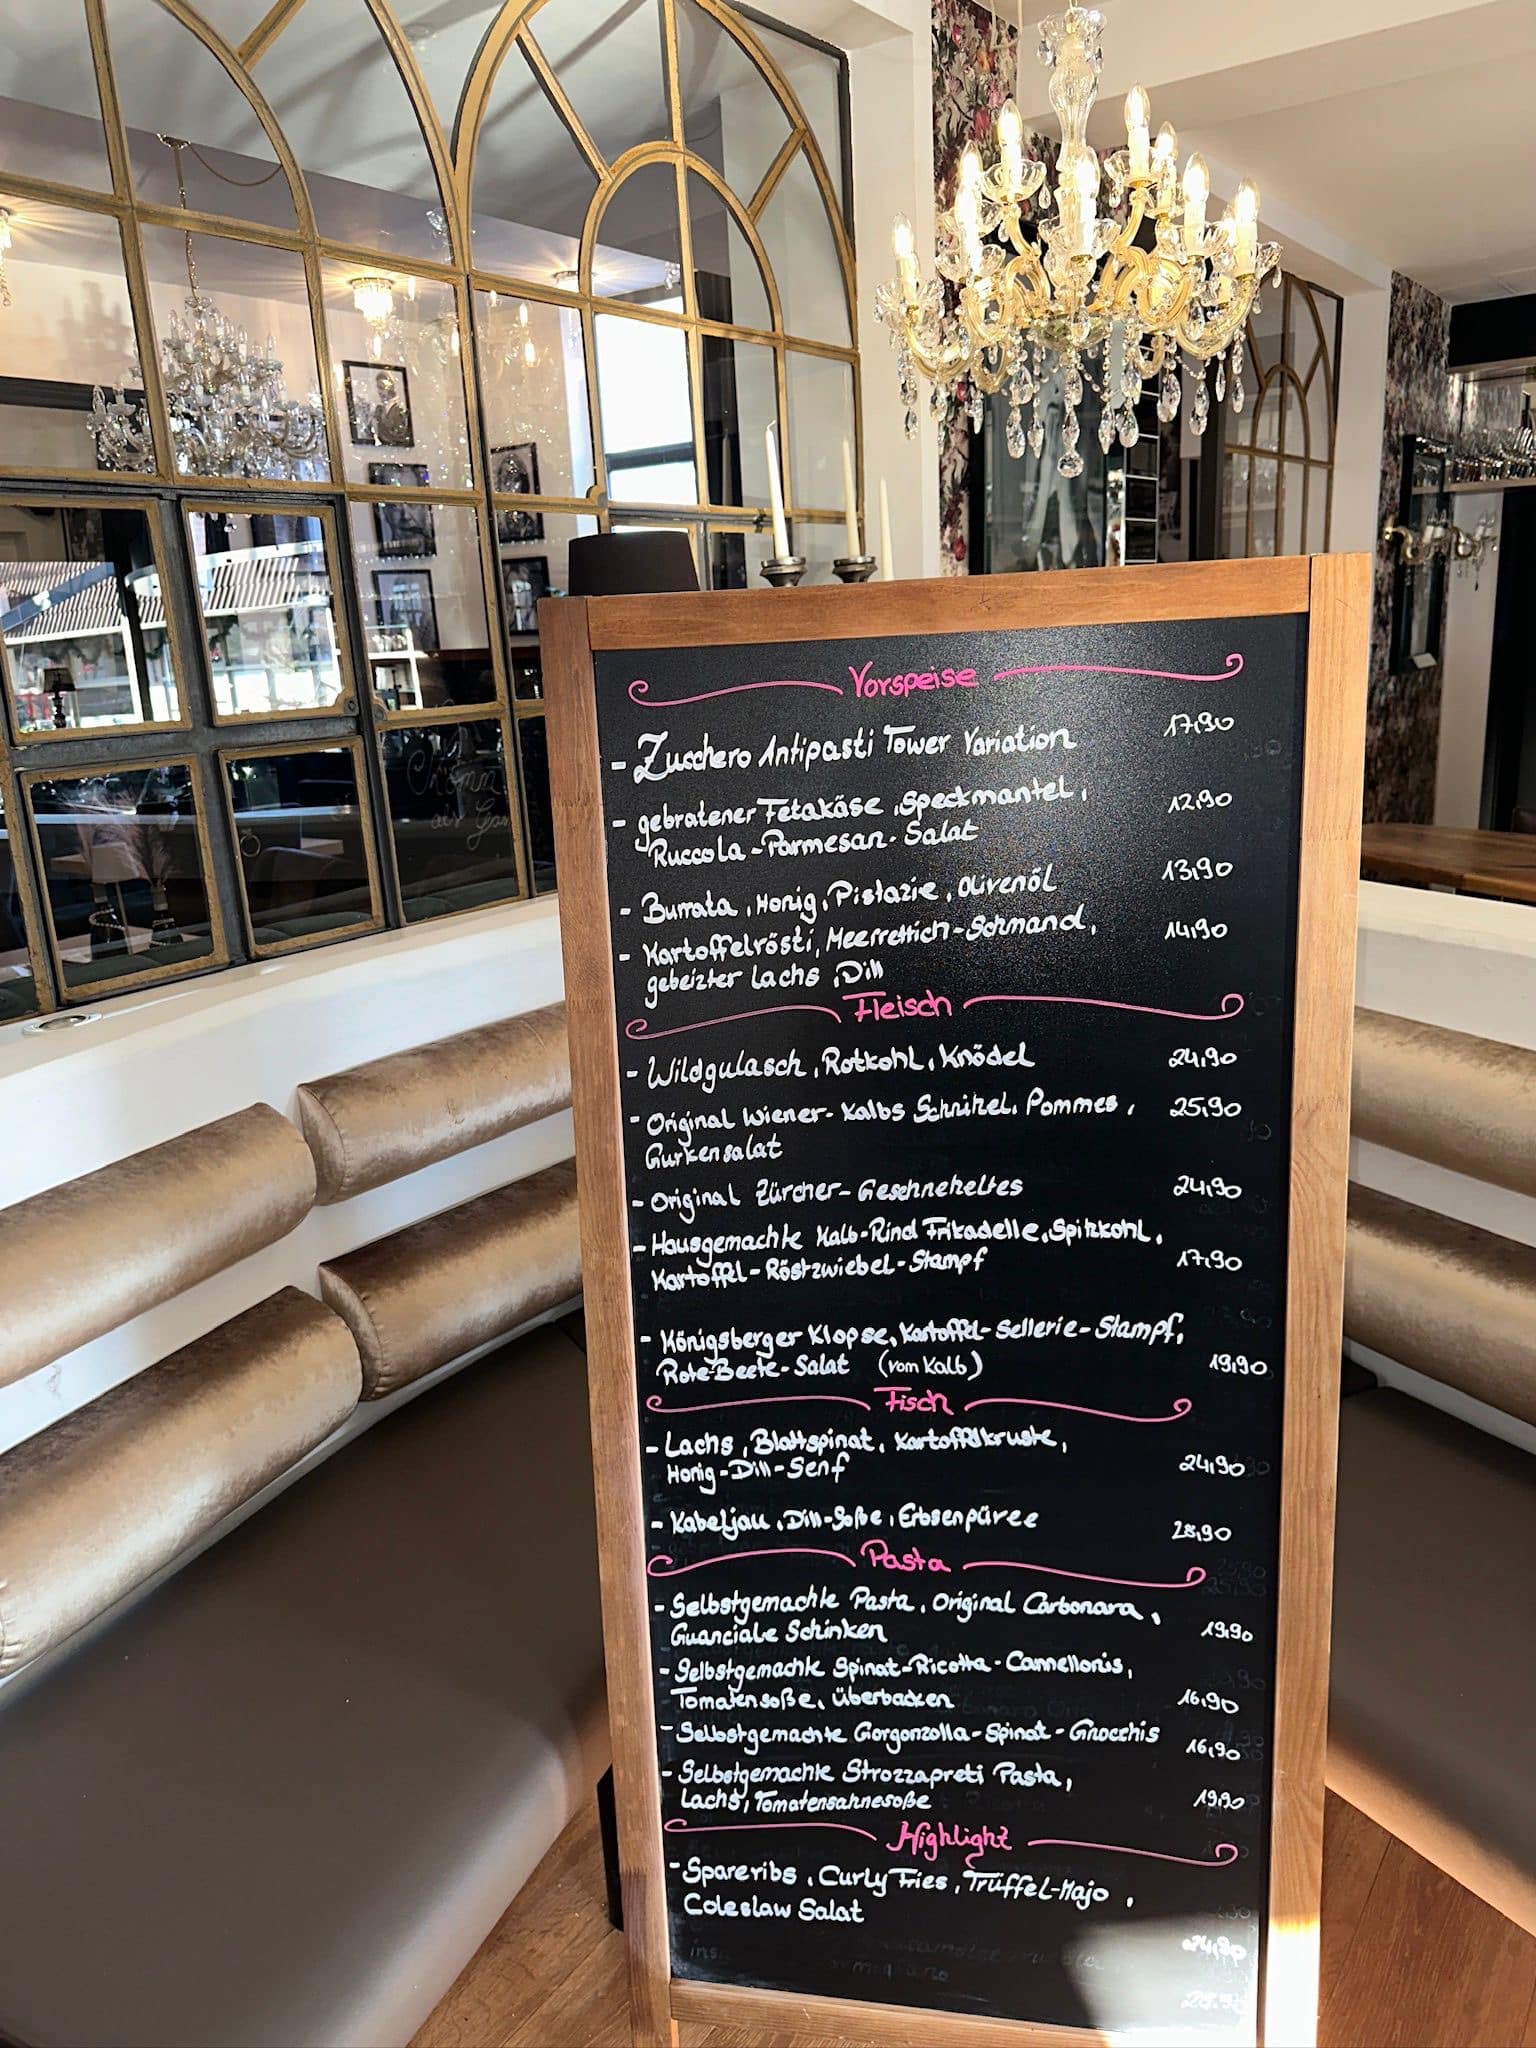 Vorspeise
- Zucchero Antipasti Tower Variation 17,90
- gebratener Fetakäse, Speckmantel, 12,90
Ruccola-Parmesan-Salat
- Burrata, Honig, Pistazie, Olivenöl 13,90
- Kartoffelrösti, Meerrettich-Schmand, 14,90
gebeizter Lachs, Dill
Fleisch
- Wildgulasch, Rotkohl, Knödel 24,90
- Original Wiener-Kalbs Schnitzel, Pommes, 25,90
Gurkensalat
- Original Zürcher-Geschnetzeltes 24,90
- Hausgemachte Kalb-Rind Frikadelle, Spitzkohl,
Kartoffel-Röstzwiebel-Stampf 17,90
- Königsberger Klopse, Kartoffel-Sellerie-Stampf,
Rote-Beete-Salat (vom Kalb) 19,90
Fisch
- Lachs, Blattspinat, Kartoffelkruste,
Honig-Dill-Senf 24,90
- Kabeljau, Dill-Soße, Erbsenpüree 28,90
Pasta
- Selbstgemachte Pasta, Original Carbonara,
Guanciale Schinken 19,90
- Selbstgemachte Spinat-Ricotta-Cannellonis,
Tomatensoße, überbacken 16,90
- Selbstgemachte Gorgonzolla-Spinat-Gnocchis 16,90
- Selbstgemachte Strozzapreti Pasta,
Lachs, Tomatensahnesoße 19,90
Highlight
- Spareribs, Curly Fries, Trüffel-Majo,
Coleslaw Salat
24,90